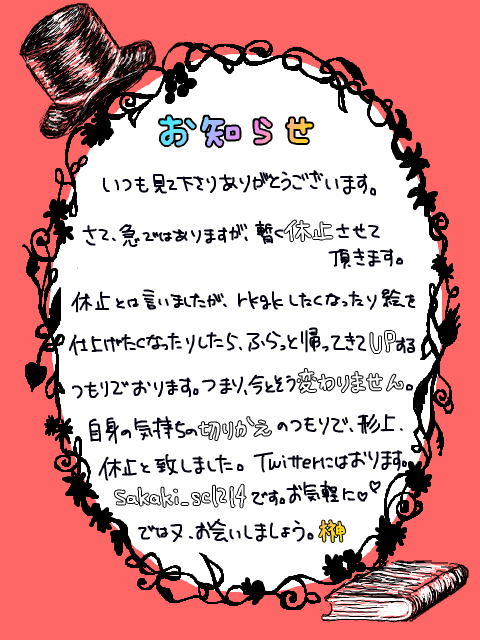 お知らせ
いつも見て下さりありがとうございます。
さて、急ではありますが、暫く休止させて
頂きます。
休止とは言いましたが、rkgkしたくなったり絵を
仕上げたくなったりしたら、ふらっと帰ってきてUPする
つもりでおります。つまり、今とそう変わりません。
自身の気持ちの切りかえのつもりで、形上、
休止と致しました。Twitterにはおります。
sakaki_sc1214です。お気軽に♡♡
ではヌ、お会いしましょう。榊